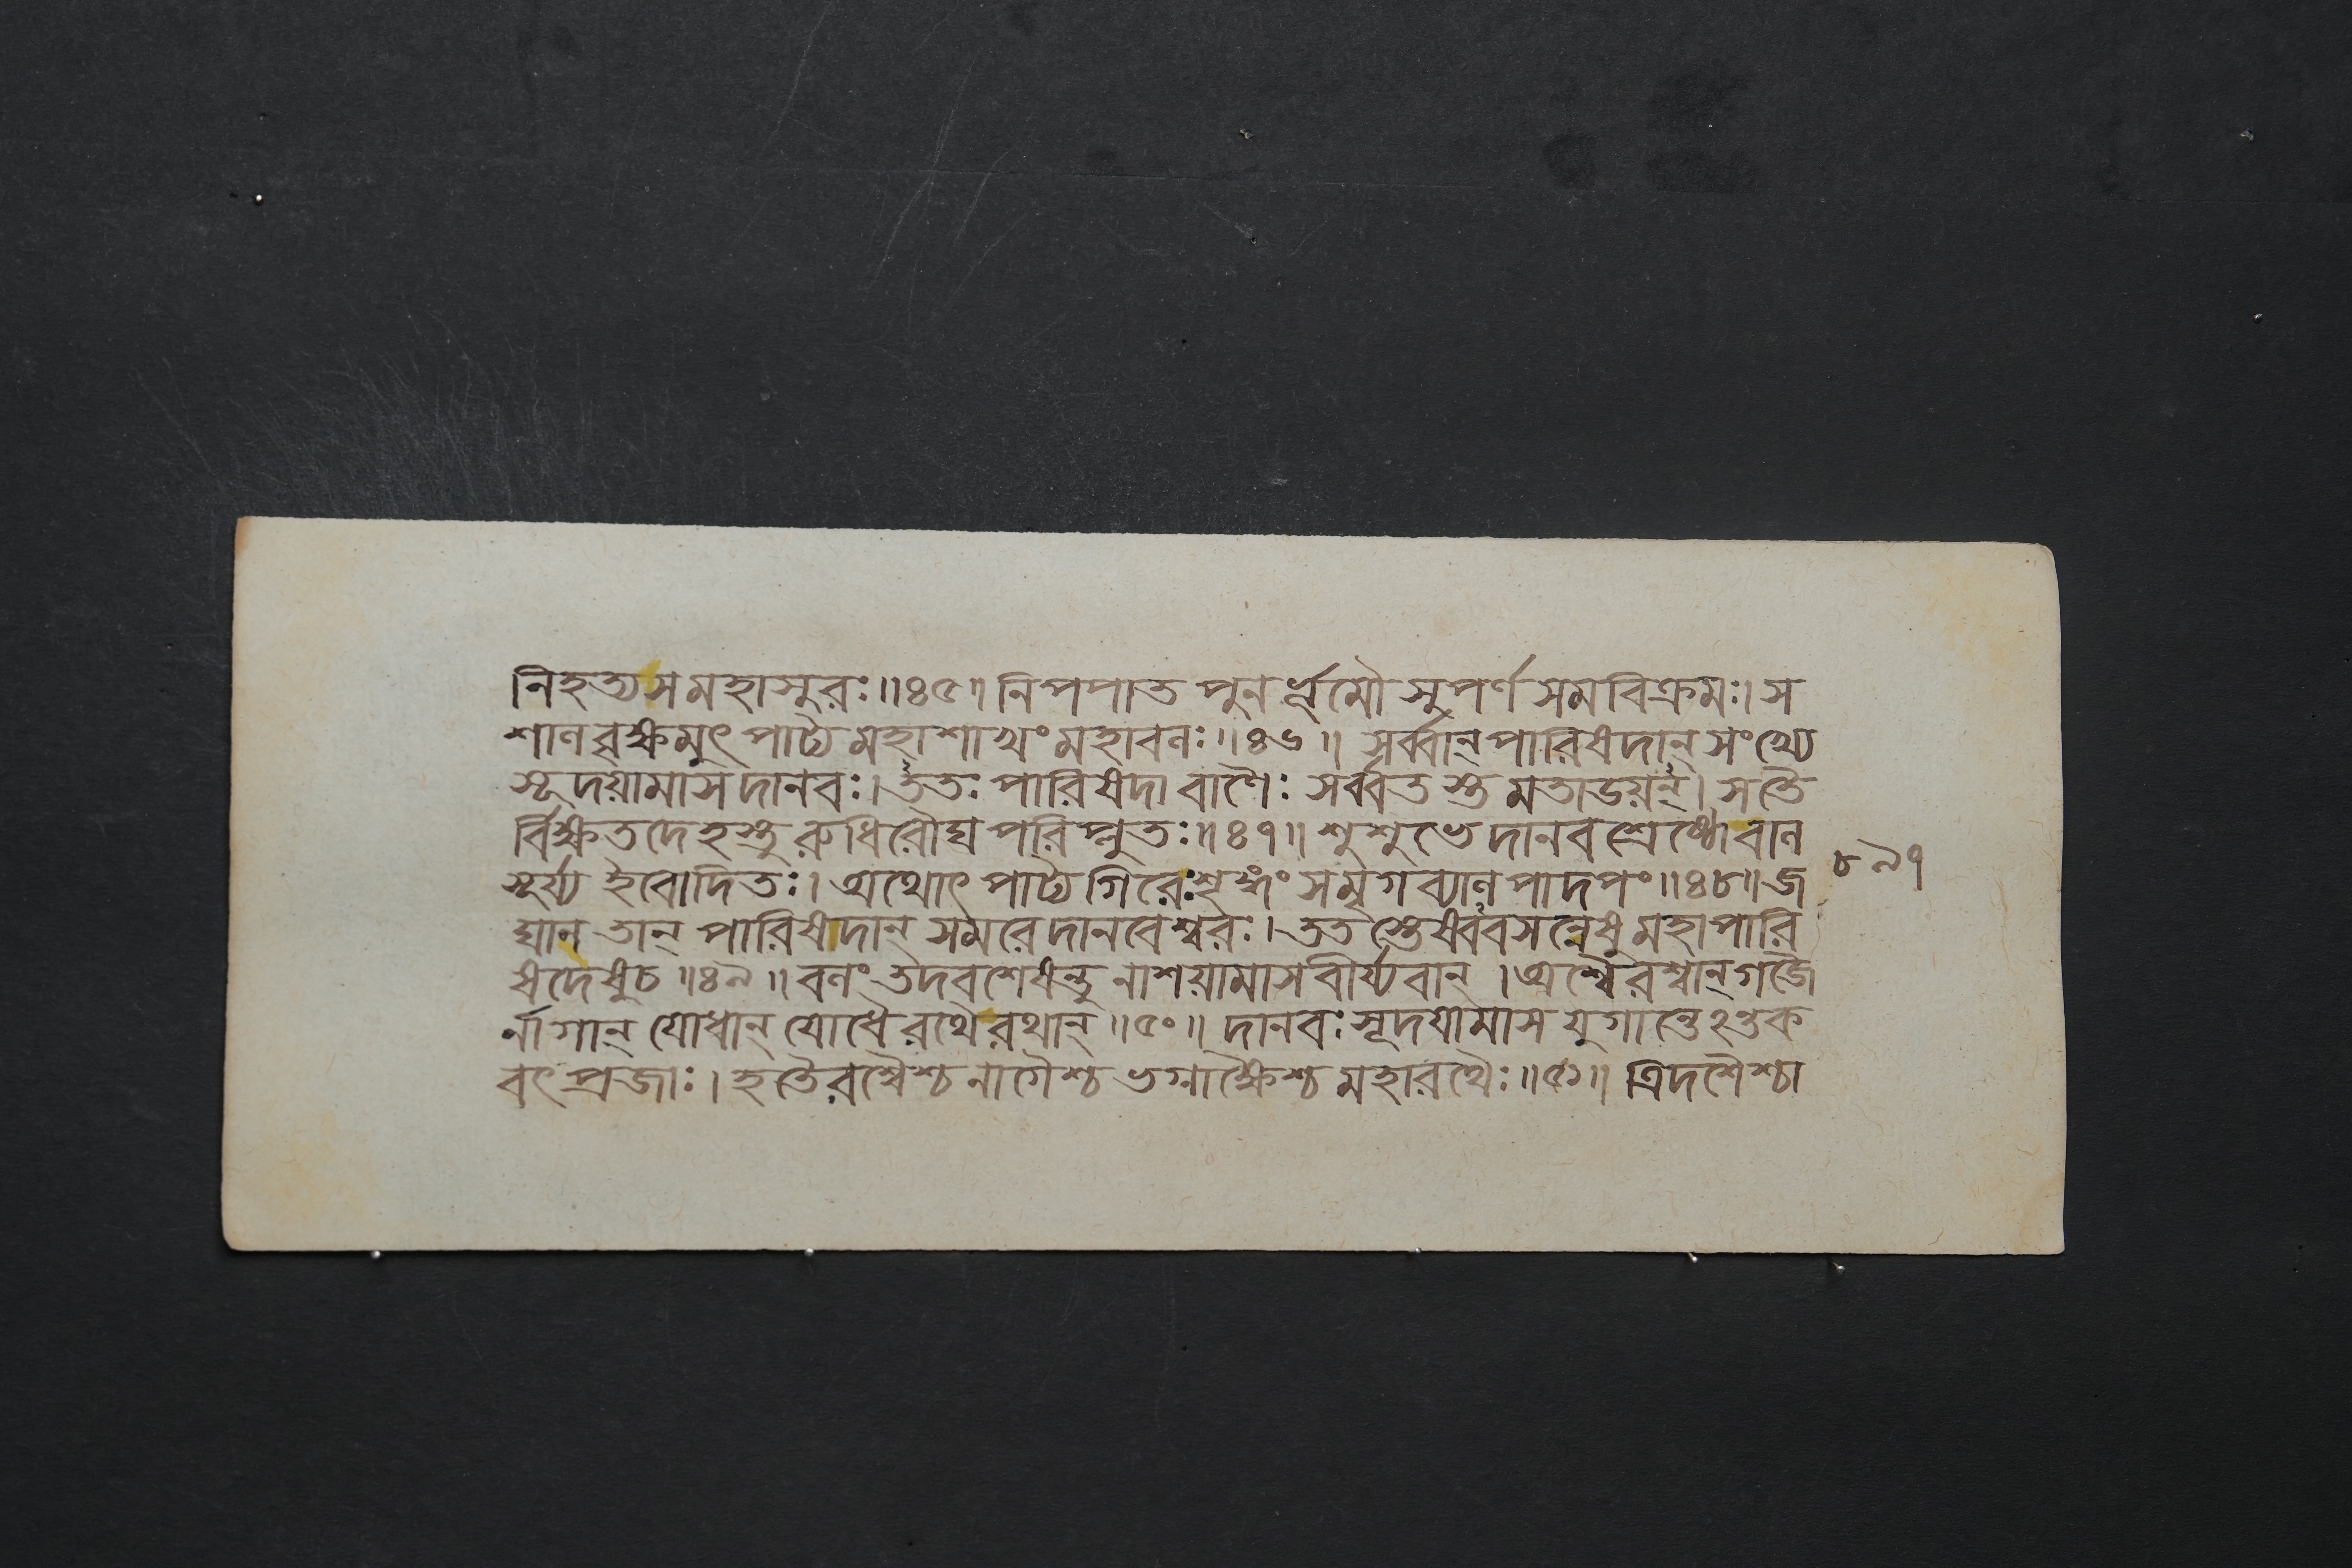 নিহত্য স মহাসুরঃ॥৪৫॥ নিপপাত পুনর্ভূমৌ সুপর্ণসমবিক্রমঃ। স
শালবৃক্ষমুৎপাট্য মহাশাখং মহাবলঃ॥৪৬॥ সর্ব্বান্ পারিষদান্ সংখ্যে
সূদয়ামাস দানবঃ। ততঃ পারিষদা বাণৈঃ সর্ব্বতস্তমতাডয়ন্। স তৈ
র্বিক্ষতদেহস্তু রুধিরৌঘপরিপ্লুতঃ॥৪৭॥ শুশুভে দানবশ্রেষ্ঠো বাল
সূর্য্য ইবোদিতঃ। অথোৎপাট্য গিরেঃ শৃঙ্গং সমৃগব্যালপাদপং॥৪৮॥ জ
ঘান তান্ পারিষদান্ সমরে দানবেশ্বরঃ। ততস্তেষ্বেবসন্নেষু মহাপারি
ষদেষু চ॥৪৯॥ বলং তদবশেষন্তু নাশয়ামাস বীর্য্যবান্। অশ্বৈরশ্বান্ গজৈ
র্নাগান্ যোধান্ যোধৈ রথৈ রথান্॥৫০॥ দানবঃ সূদয়ামাস যুগান্তেঽন্তক
বৎ প্রজাঃ। হতৈরশ্বৈশ্চ নাগৈশ্চ ভগ্নাক্ষৈশ্চ মহারথৈঃ॥৫১॥ ত্রিদশৈশ্চা
৮৯৭